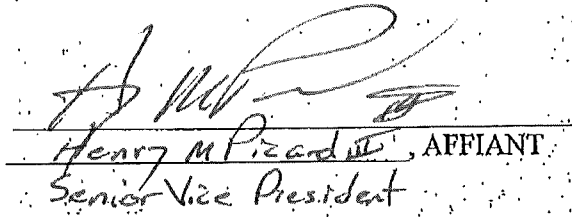 H M P III
Henry M Picard III, AFFIANT
Senior Vice President